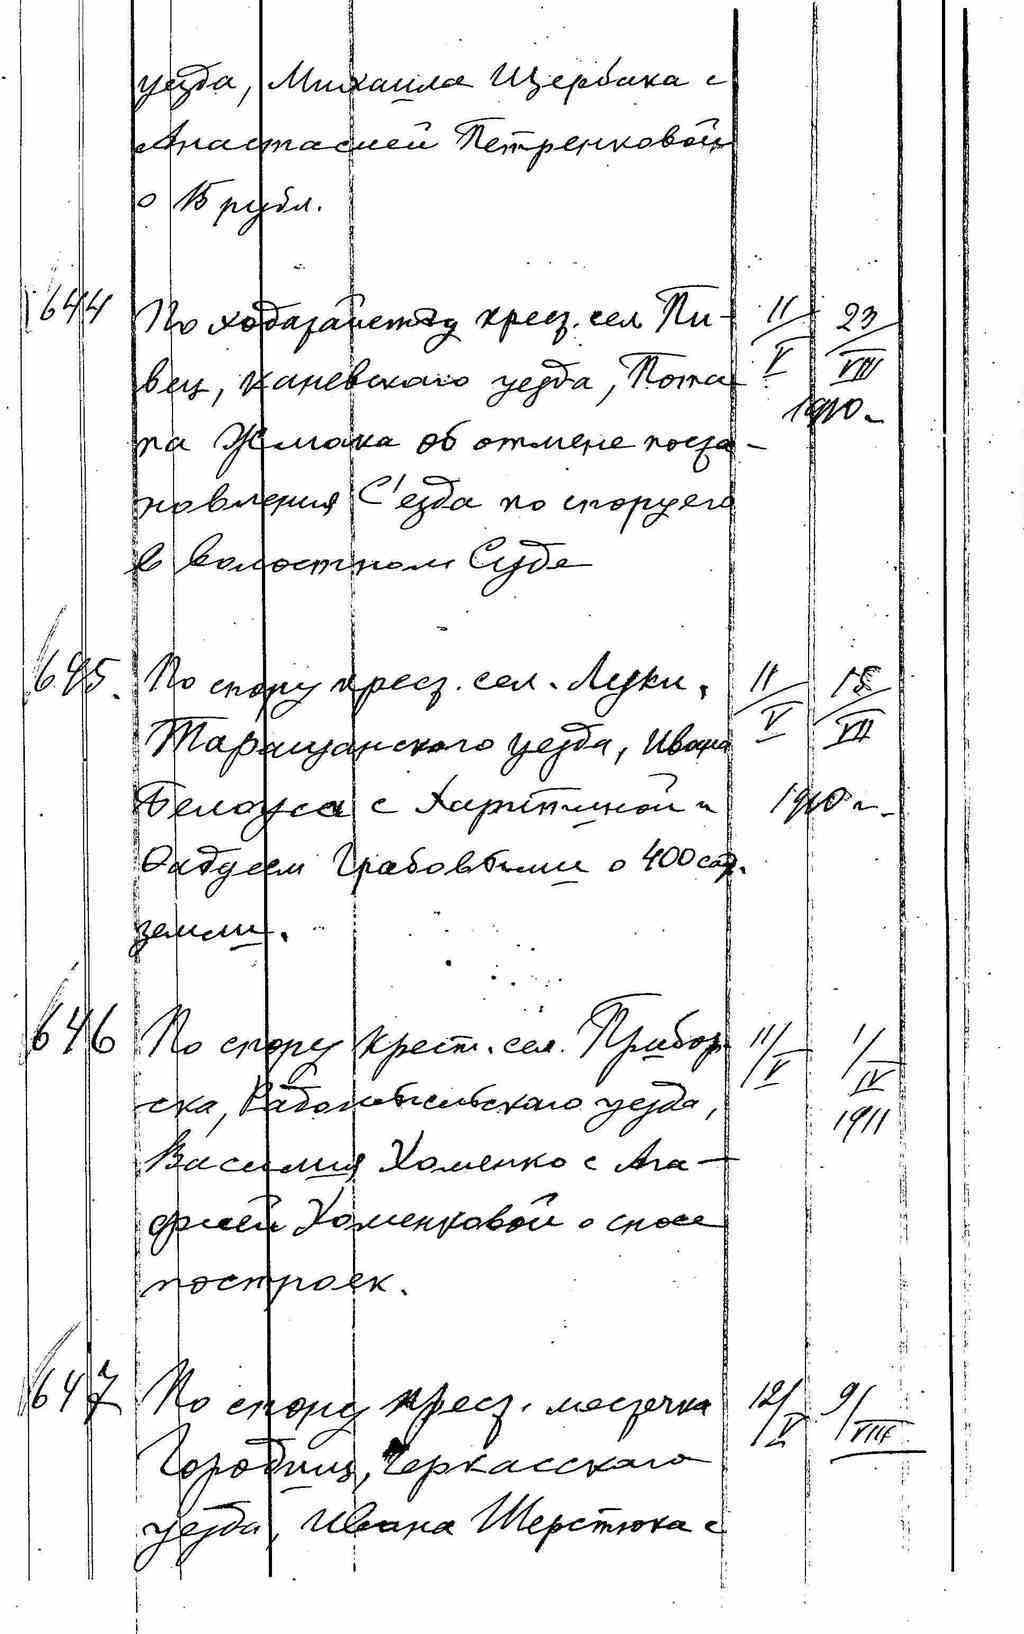 уезда, Михаила Щербака с
Анастасией Петренковой
о 15 рубл.
644 По ходатайству крест. сел. Пи- 11/V 23/VIII
вец, Каневского уезда, Пота- 1910
па об отмене поста-
новления С'езда по спору его
в волостном Суде
645. По спору крест. сел. Луки, 11/V 15/VII
Таращанского уезда, Ивана
Белоуса с Харитиной и 1910 г.
Фадеем Грабовыми о 400 саж.
земли.
646 По спору крест. сел. Прибор- 11/V 1/IV
ска, Радомысльского уезда, 1911
Василия Хоменко с Ага-
фией Хоменковой о сносе
построек.
647 По спору крест. местечка 12/V 9/VIII
Городищ, Черкасского
уезда, Ивана Шерстюка с